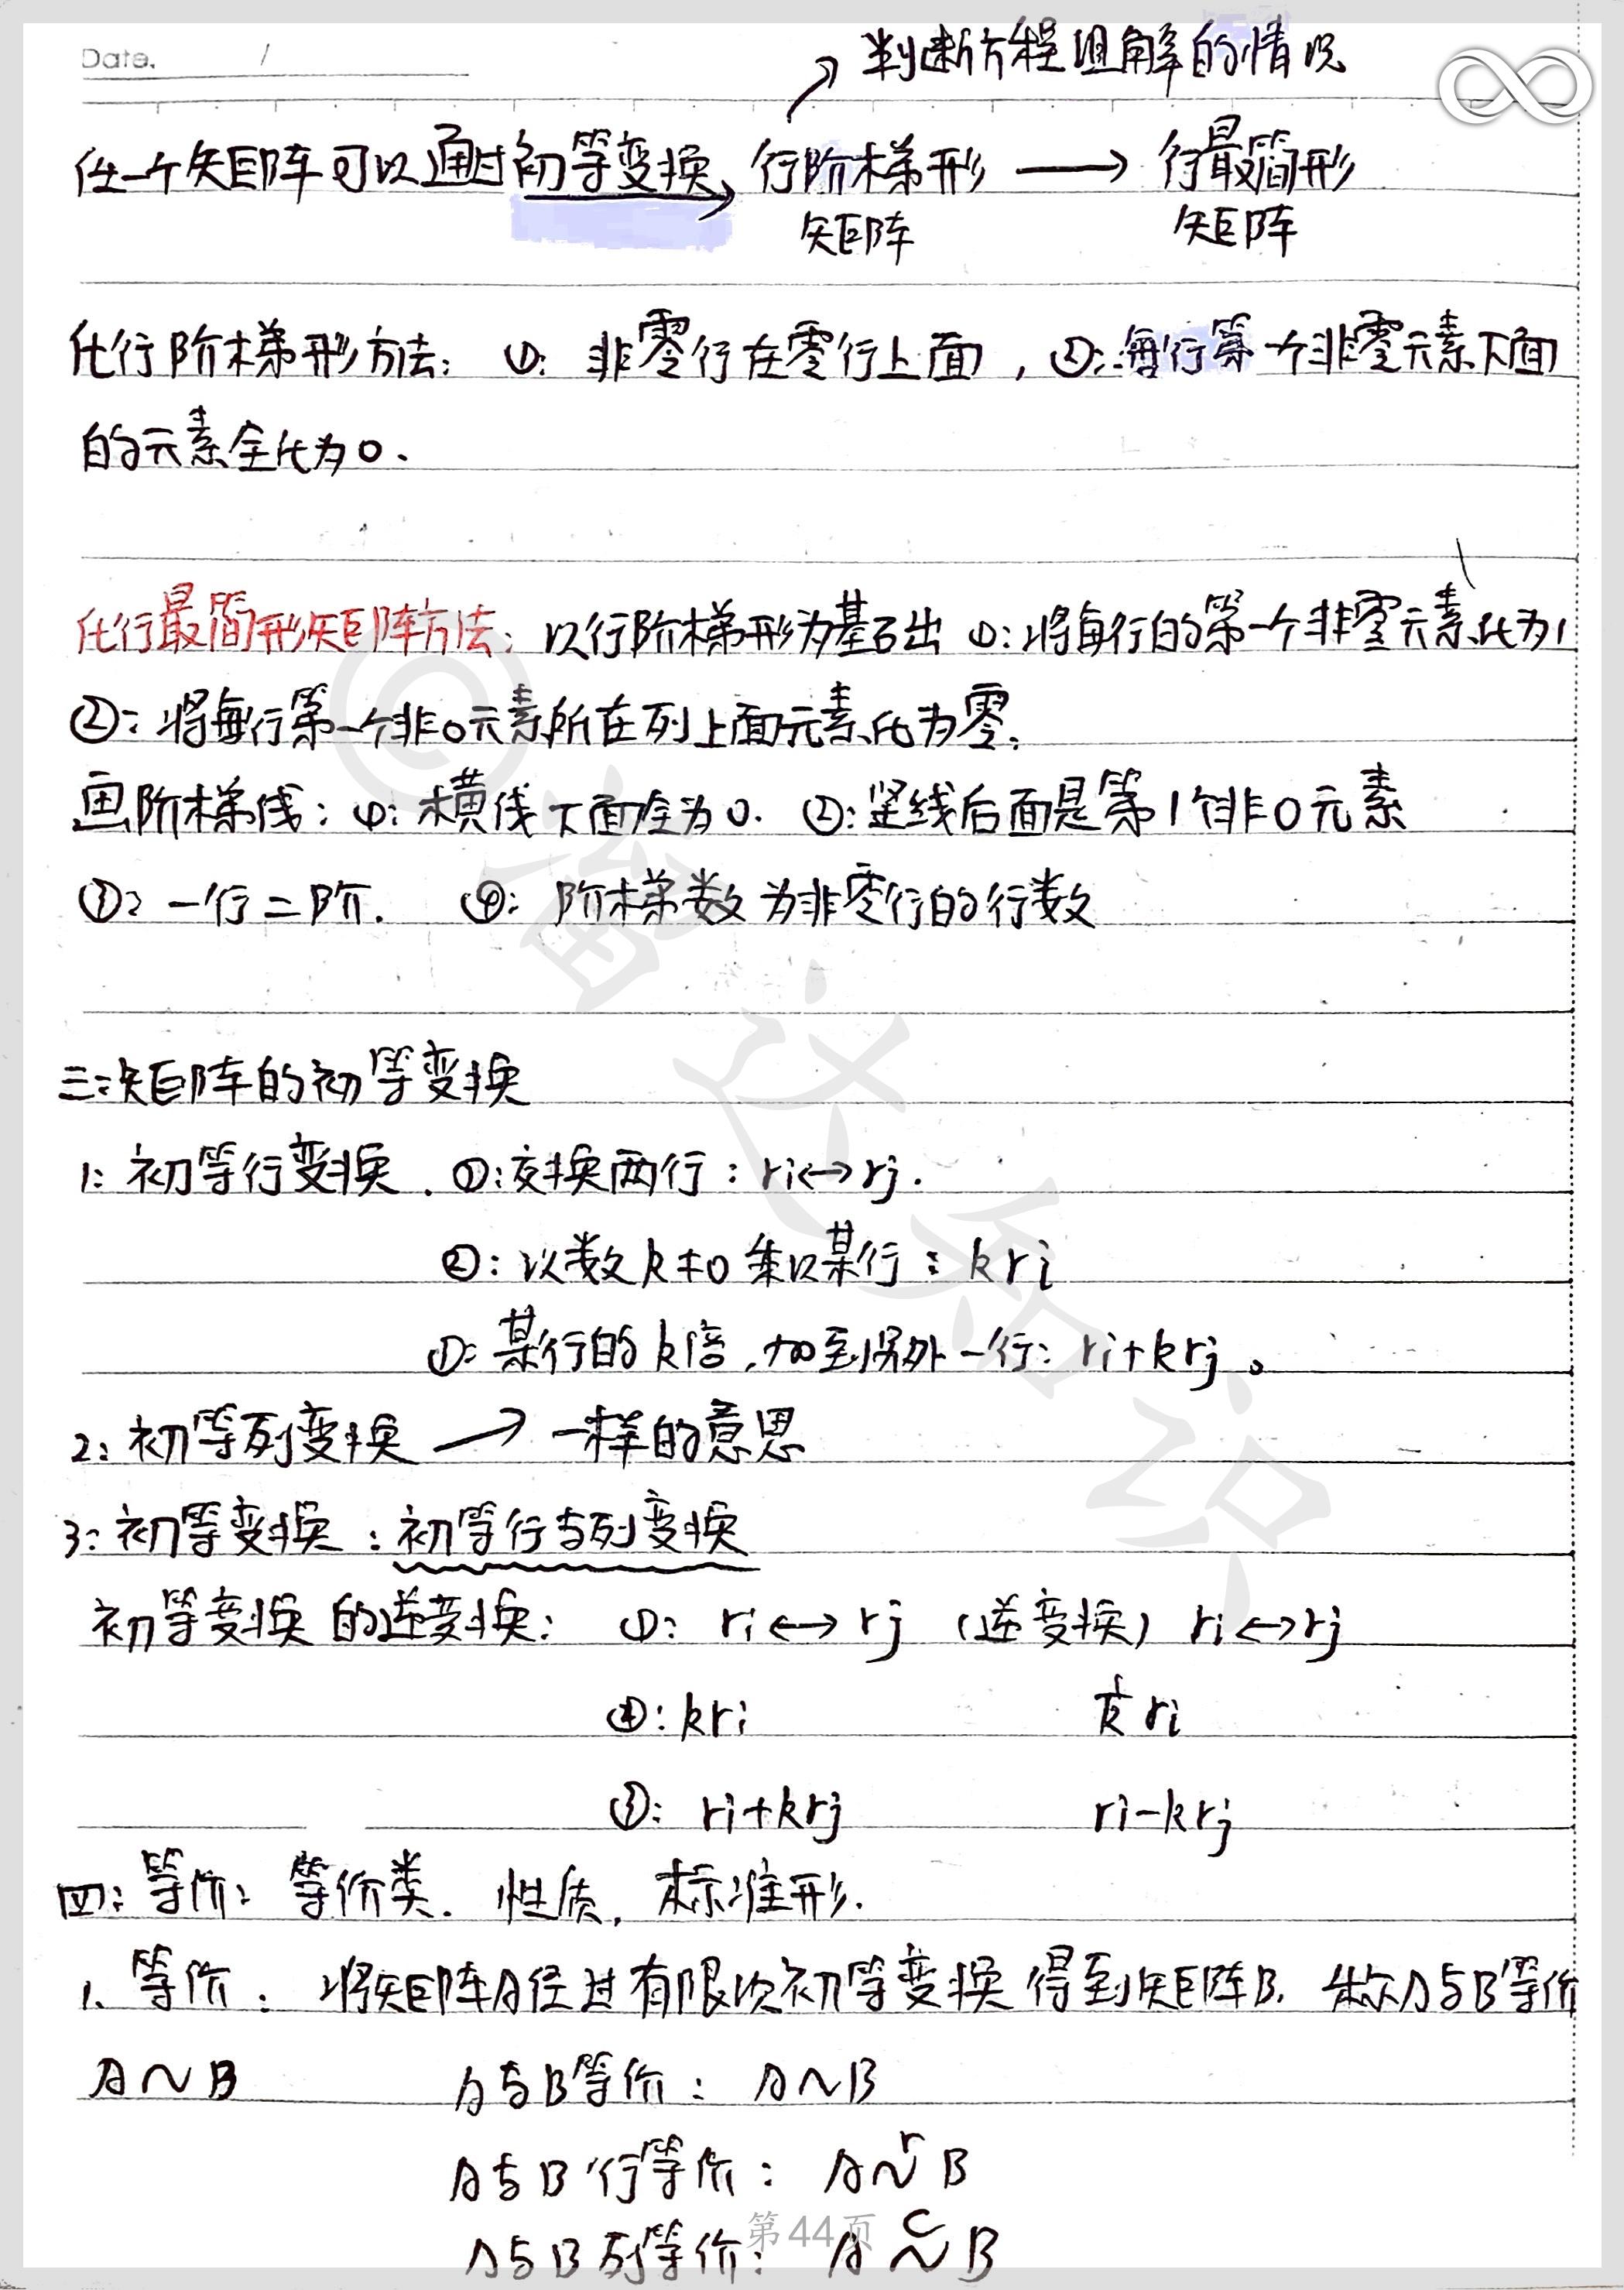 Date. /
判断方程组解的情况
任一个矩阵可以通过初等变换 行阶梯形 → 行最简形
矩阵 矩阵
化行阶梯形方法: ①: 非零行在零行上面, ②: 每行第一个非零元素下面
的元素全化为0.
化行最简形矩阵方法: 以行阶梯形为基础出 ①: 将每行的第一个非零元素化为1
②: 将每行第一个非0元素所在列上面元素化为零.
画阶梯线: ①: 横线下面全为0. ②: 竖线后面是第1个非0元素
③: 一行一阶. ④: 阶梯数为非零行的行数
三: 矩阵的初等变换
1: 初等行变换. ①: 交换两行: ri↔rj.
②: 以数k≠0乘以某行: kri
①: 某行的k倍,加到另外一行: ri+krj。
2: 初等列变换 → 一样的意思
3: 初等变换: 初等行与列变换
初等变换的逆变换: ①: ri↔rj (逆变换) ri↔rj
②: kri 1/k ri
③: ri+krj ri-krj
四: 等价: 等价类. 性质, 标准形.
1. 等价: 将矩阵A经过有限次初等变换得到矩阵B. 称A与B等价
A∼B A与B等价: A∼B
A与B行等价: A r∼ B
A与B列等价: A c∼ B
第44页
©溜达知识